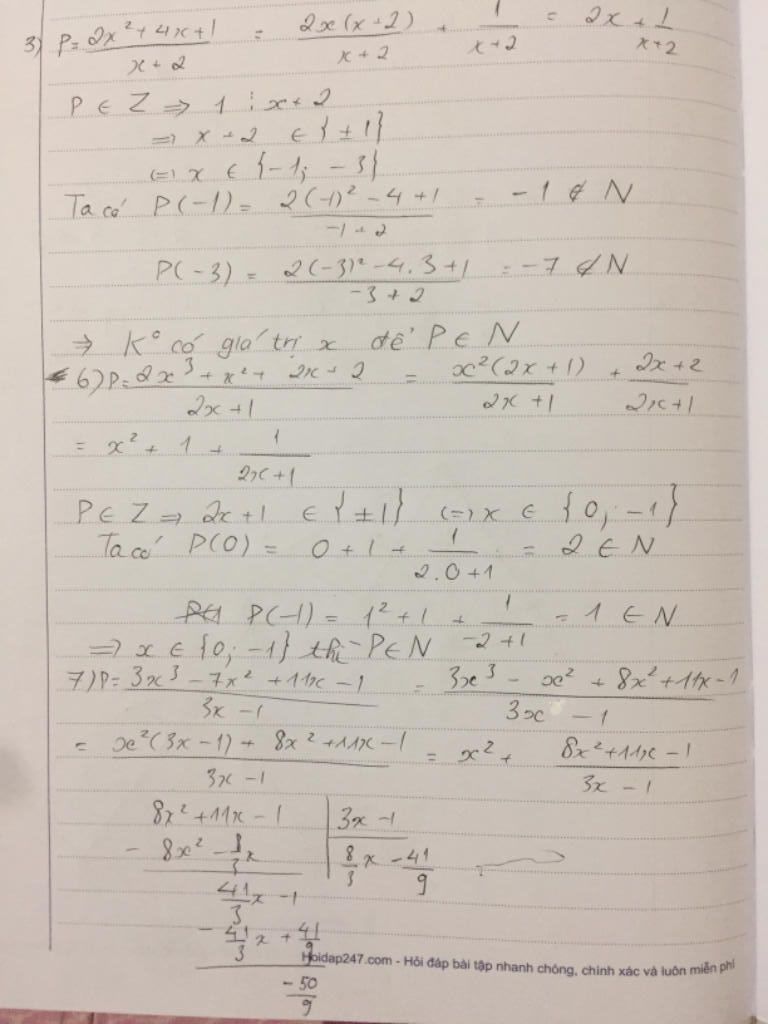 3) P = (2x² + 4x + 1)/(x + 2) = (2x(x + 2))/(x + 2) + 1/(x + 2) = 2x + 1/(x + 2)
P ∈ Z => 1 ⋮ x + 2
=> x + 2 ∈ {±1}
<=> x ∈ {-1; -3}
Ta có P(-1) = (2(-1)² - 4 + 1)/(-1 + 2) = -1 ∉ N
P(-3) = (2(-3)² - 4.3 + 1)/(-3 + 2) = -7 ∉ N
=> K° có giá trị x để P ∈ N
6) P = (2x³ + x² + 2x + 2)/(2x + 1) = (x²(2x + 1))/(2x + 1) + (2x + 2)/(2x + 1)
= x² + 1 + 1/(2x + 1)
P ∈ Z => 2x + 1 ∈ {±1} <=> x ∈ {0; -1}
Ta có P(0) = 0 + 1 + 1/(2.0 + 1) = 2 ∈ N
P(-1) = 1² + 1 + 1/(-2 + 1) = 1 ∈ N
=> x ∈ {0; -1} thì P ∈ N
7) P = (3x³ - 7x² + 11x - 1)/(3x - 1) = (3x³ - x² + 8x² + 11x - 1)/(3x - 1)
= (x²(3x - 1) + 8x² + 11x - 1)/(3x - 1) = x² + (8x² + 11x - 1)/(3x - 1)
8x² + 11x - 1 | 3x - 1
- 8x² - 8/3 x | 8/3 x - 41/9
41/3 x - 1
- 41/3 x + 41/9
Hoidap247.com - Hỏi đáp bài tập nhanh chóng, chính xác và luôn miễn phí
-50/9